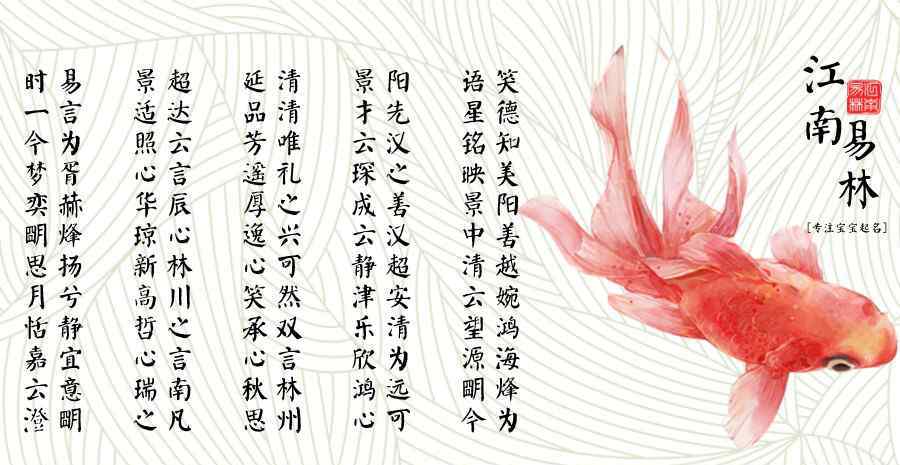 江南
易林
江南易林
[专注宝宝起名]
笑德知美阳善越婉鸿海烽为
语星铭映景中清云望源明今
阳先汉之善汉超安清为远可
景才云琛成云静津乐欣鸿心
清清唯礼之兴可然双言林州
延品芳遥厚逸心笑承心秋思
超达云言辰心林川之言南凡
景适照心华琼新高哲心瑞之
易言为胥赫烽扬兮静宜意明
时一今梦奕明思月恬嘉云澄